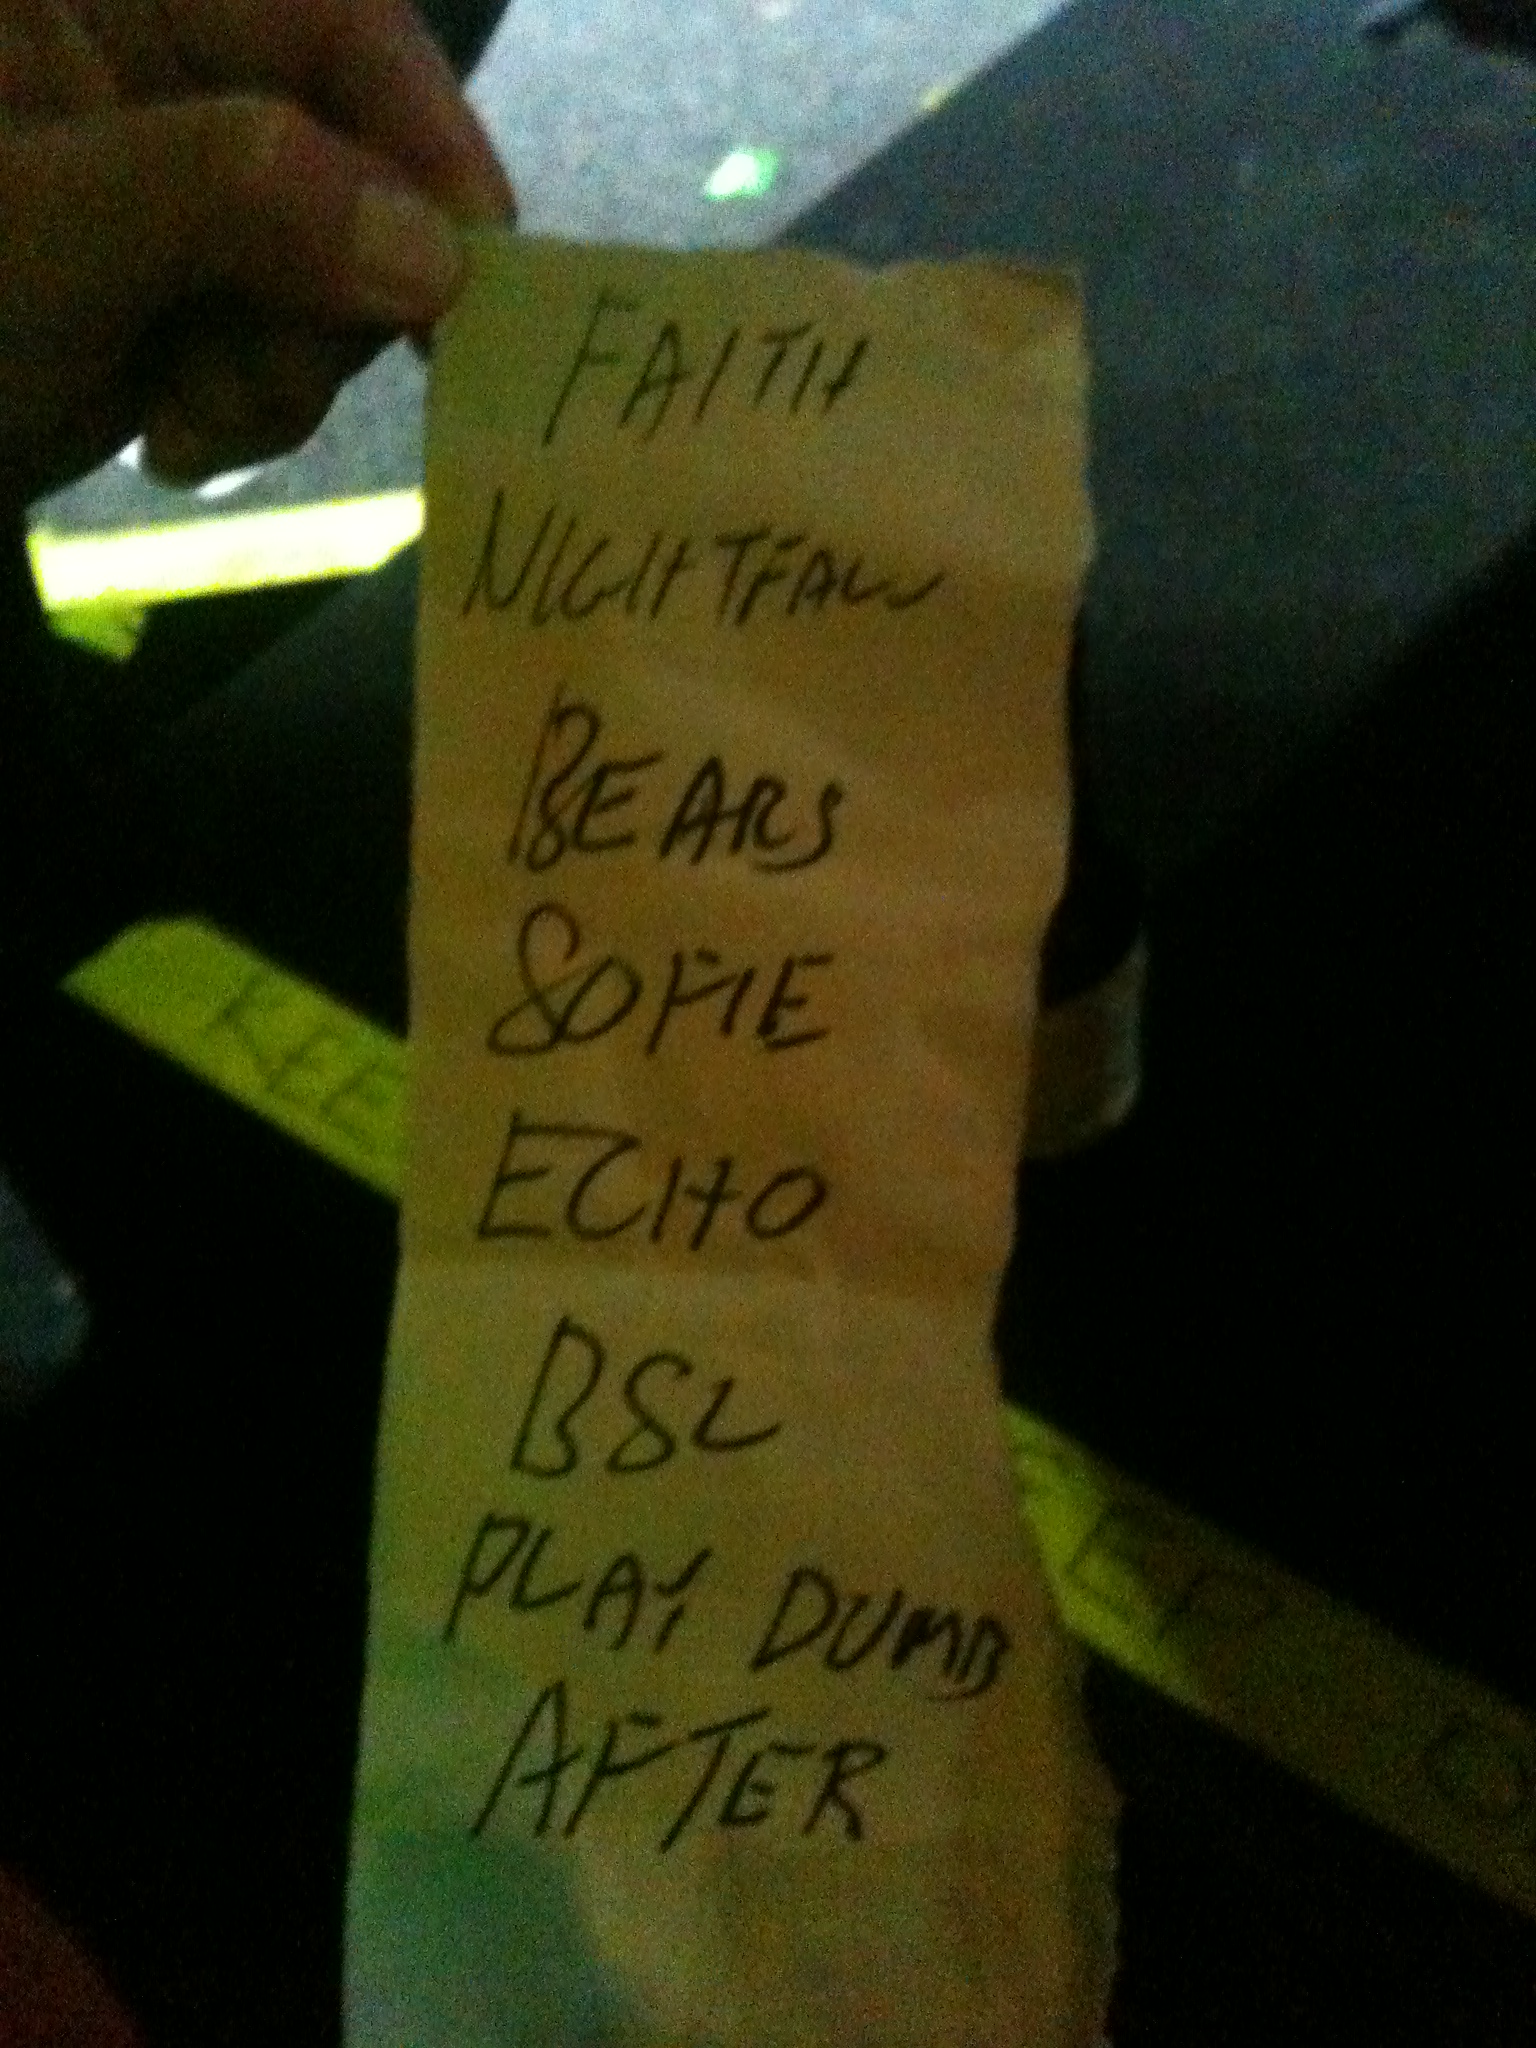 FAITH
NIGHTFALL
BEARS
SOFIE
ECHO
BSL
PLAY DUMB
AFTER
KEE